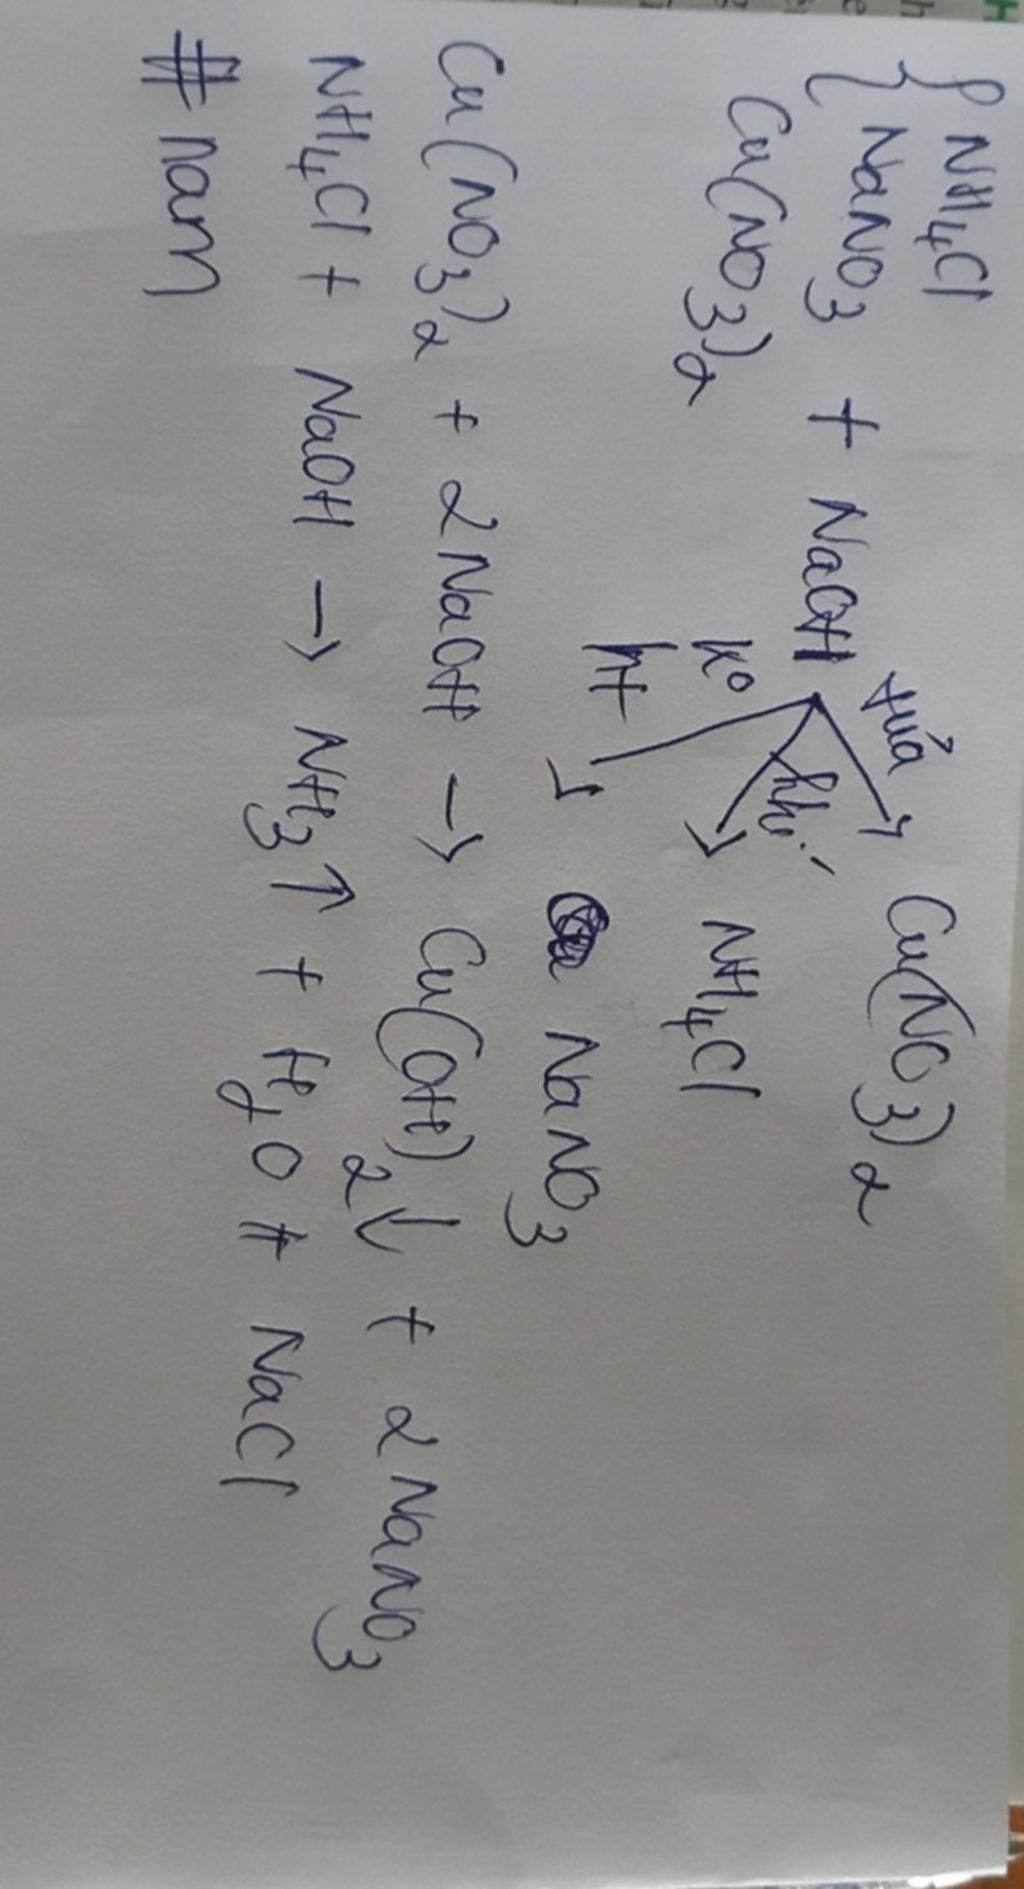 NH4Cl
NaNO3 + NaOH
Cu(NO3)2
tủa Cu(NO3)2
khí NH4Cl
k° ht NaNO3
Cu(NO3)2 + 2NaOH → Cu(OH)2↓ + 2NaNO3
NH4Cl + NaOH → NH3↑ + H2O + NaCl
# nam